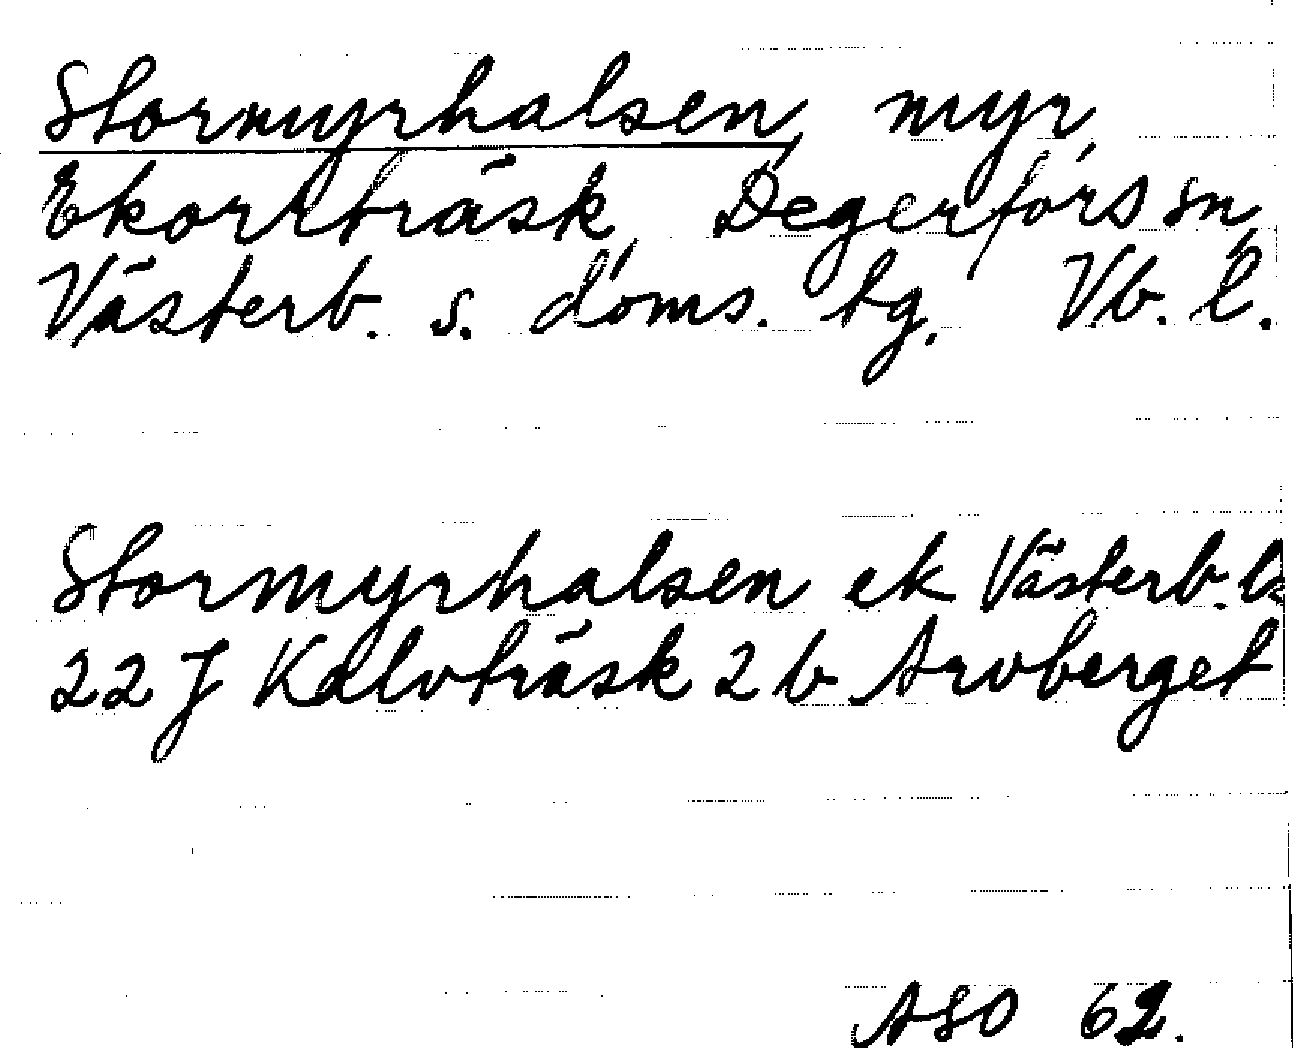 Stormyrhalsen, myr,
Ekorrträsk, Degerfors sn,
Västerb. s. doms. tg, Vb. l.
Stormyrhalsen ek Västerb. l.
22 J Kalvträsk 2 b Arvberget
ASO 62.